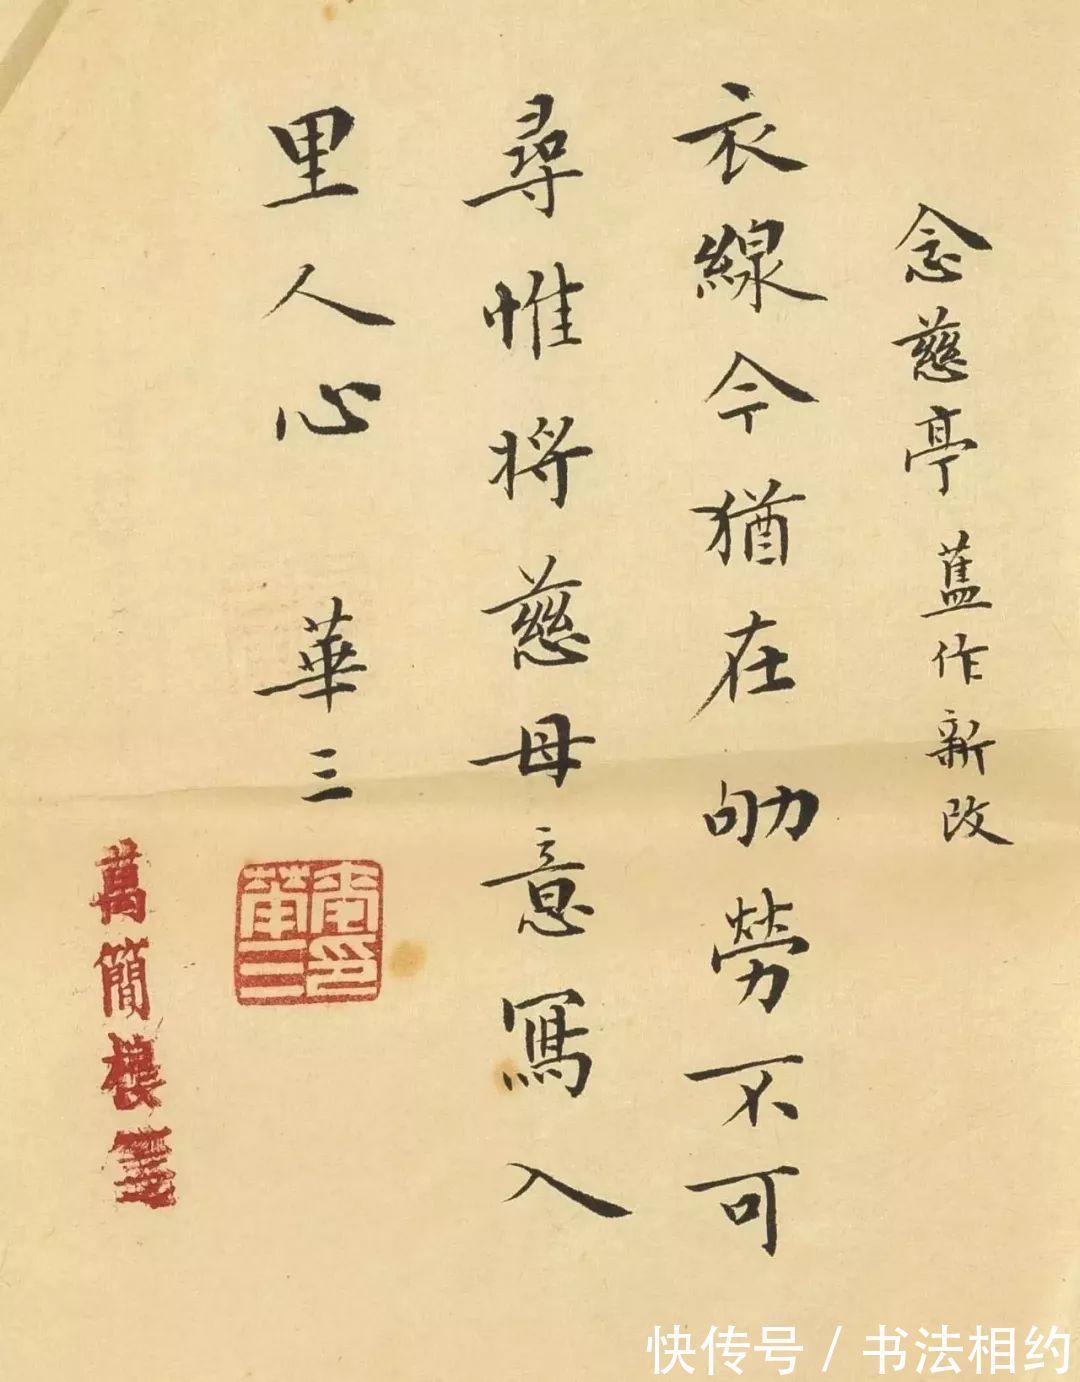 念慈亭 舊作新改
衣線今猶在劬勞不可
尋惟將慈母意寫入
里人心 華三
萬簡樓
快传号 / 书法相约